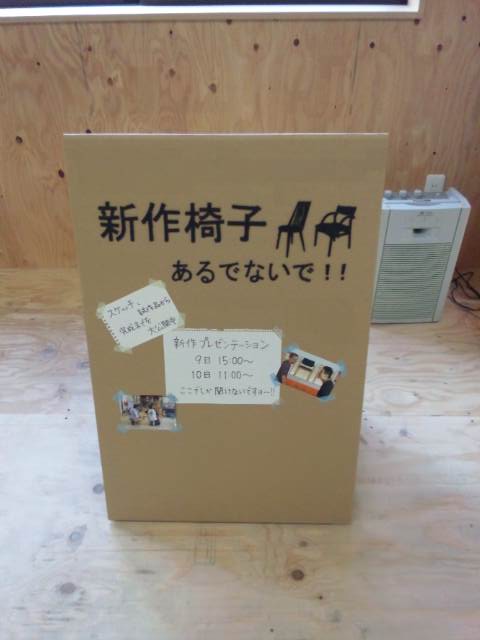 新作椅子
あるでないで！！
スケッチ、
試作品から
完成までを
大公開中
新作プレゼンテーション
9日 15:00～
10日 11:00～
ここでしか聞けないですヨ～!!